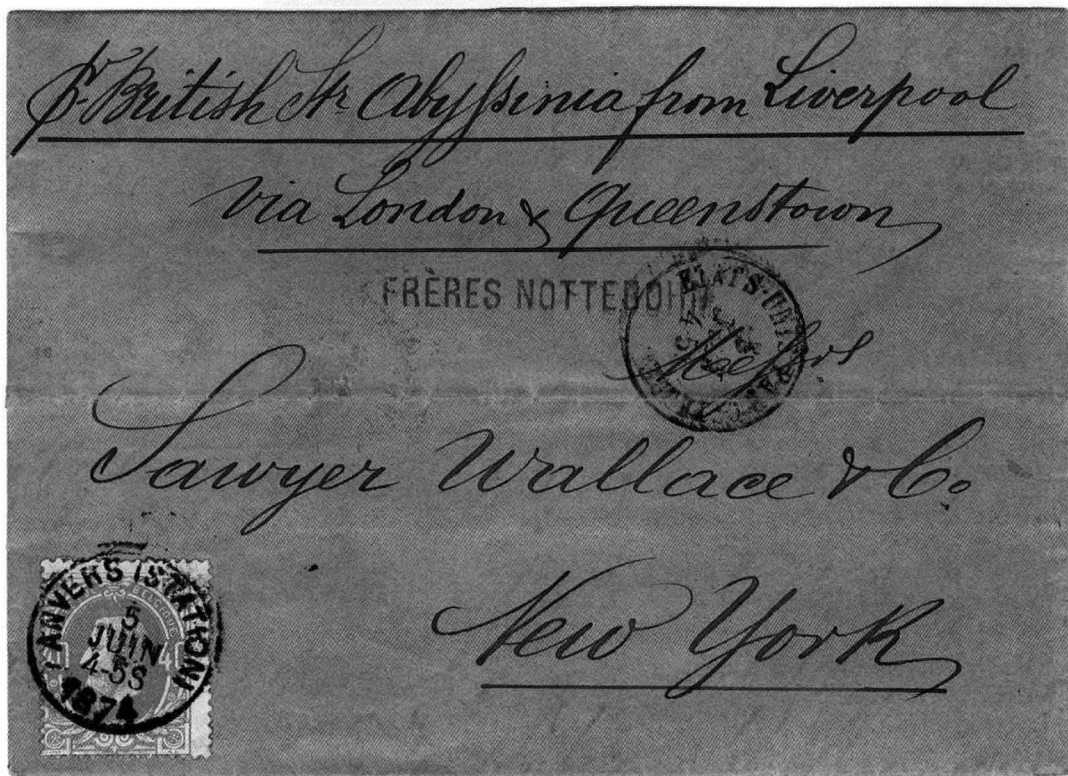 pr British Str Abyssinia from Liverpool
via London & Queenstown
FRÈRES NOTTEBOHM
ETATS-UNIS
Messrs
Sawyer Wallace & Co.
New York
ANVERS (STATION)
BELGIQUE
5
JUIN
4-5S
1874